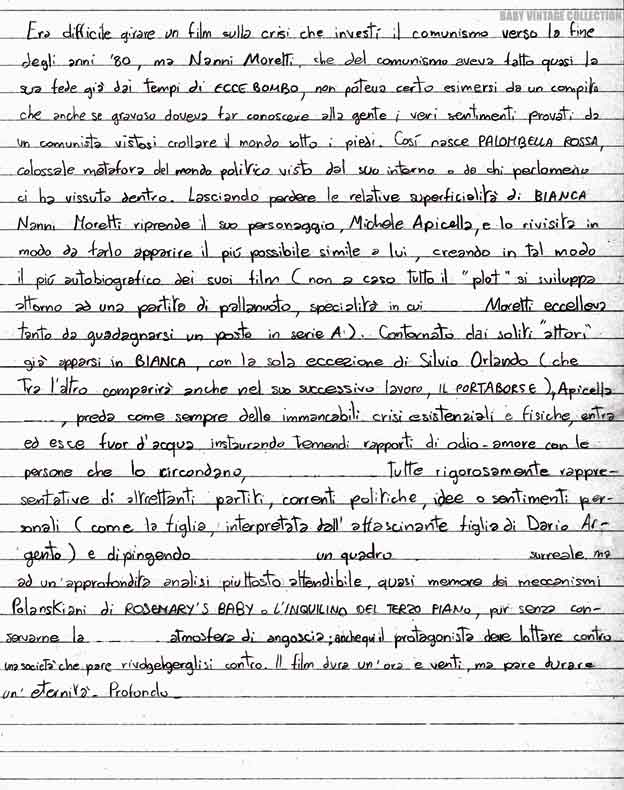 BABY VINTAGE COLLECTION
Era difficile girare un film sulla crisi che investí il comunismo verso la fine
degli anni '80, ma Nanni Moretti, che del comunismo aveva fatto quasi la
sua fede già dai tempi di ECCE BOMBO, non poteva certo esimersi da un compito
che anche se gravoso doveva far conoscere alla gente i veri sentimenti provati da
un comunista vistosi crollare il mondo sotto i piedi. Cosí nasce PALOMBELLA ROSSA,
colossale metafora del mondo politico visto dal suo interno o da chi perlomeno
ci ha vissuto dentro. Lasciando perdere le relative superficialità di BIANCA
Nanni Moretti riprende il suo personaggio, Michele Apicella, e lo rivisita in
modo da farlo apparire il piú possibile simile a lui, creando in tal modo
il piú autobiografico dei suoi film (non a caso tutto il "plot" si sviluppa
attorno ad una partita di pallanuoto, specialità in cui Moretti eccelleva
tanto da guadagnarsi un posto in serie A.). Contornato dai soliti "attori"
già apparsi in BIANCA, con la sola eccezione di Silvio Orlando (che
tra l'altro comparirà anche nel suo successivo lavoro, IL PORTABORSE), Apicella
, preda come sempre delle immancabili crisi esistenziali e fisiche, entra
ed esce fuor d'acqua instaurando tremendi rapporti di odio-amore con le
persone che lo circondano, Tutte rigorosamente rappre-
sentative di altrettanti partiti, correnti politiche, idee o sentimenti per-
sonali (come la figlia, interpretata dall'affascinante figlia di Dario Ar-
gento) e dipingendo un quadro surreale, ma
ad un'approfondita analisi piuttosto attendibile, quasi memore dei meccanismi
Polanskiani di ROSEMARY'S BABY o L'INQUILINO DEL TERZO PIANO, pur senza con-
servarne la atmosfera di angoscia; anche qui il protagonista deve lottare contro
una società che pare contro. Il film dura un'ora e venti, ma pare durare
un'eternità. Profondo.